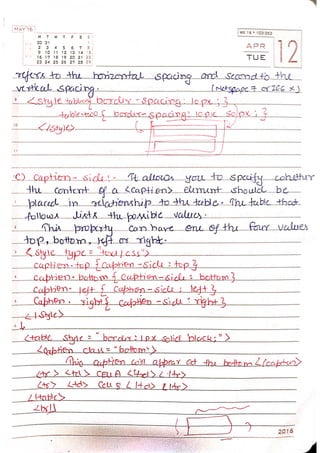 MAY'16
M T W T F S S
30 31 1
2 3 4 5 6 7 8
9 10 11 12 13 14 15
16 17 18 19 20 21 22
23 24 25 26 27 28 29
WK 16 • 103-263
APR
TUE
12
refers to the horizontal spacing and second to the
vertical spacing. (Netspape 7 or IE6 x)
<style> border-spacing: 10px; }
table.two { border-spacing: 10px 50px; }
</style>
c) Caption-side:- It allows you to specify whether
the content of a <caption> element should be
placed in relationship to the table. The table that
follows lists the possible values.
This property can have one of the four values
top, bottom, left or right.
<style type="text/css">
caption.top {caption-side: top}
caption.bottom {caption-side: bottom}
caption.left {caption-side: left}
caption.right {caption-side: right}
</style>
<table style="border: 1px solid black;">
<caption class="bottom">
This caption will appear at the bottom </caption>
<tr> <td> Cell A </td> </tr>
<tr> <td> Cell B </td> </tr>
</table>
2016